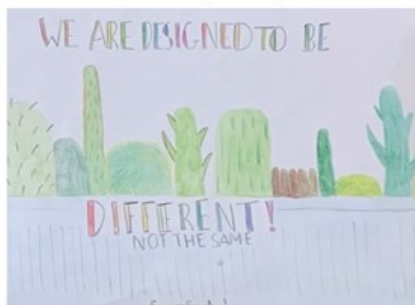 WE ARE DESIGNED TO BE
DIFFERENT!
NOT THE SAME